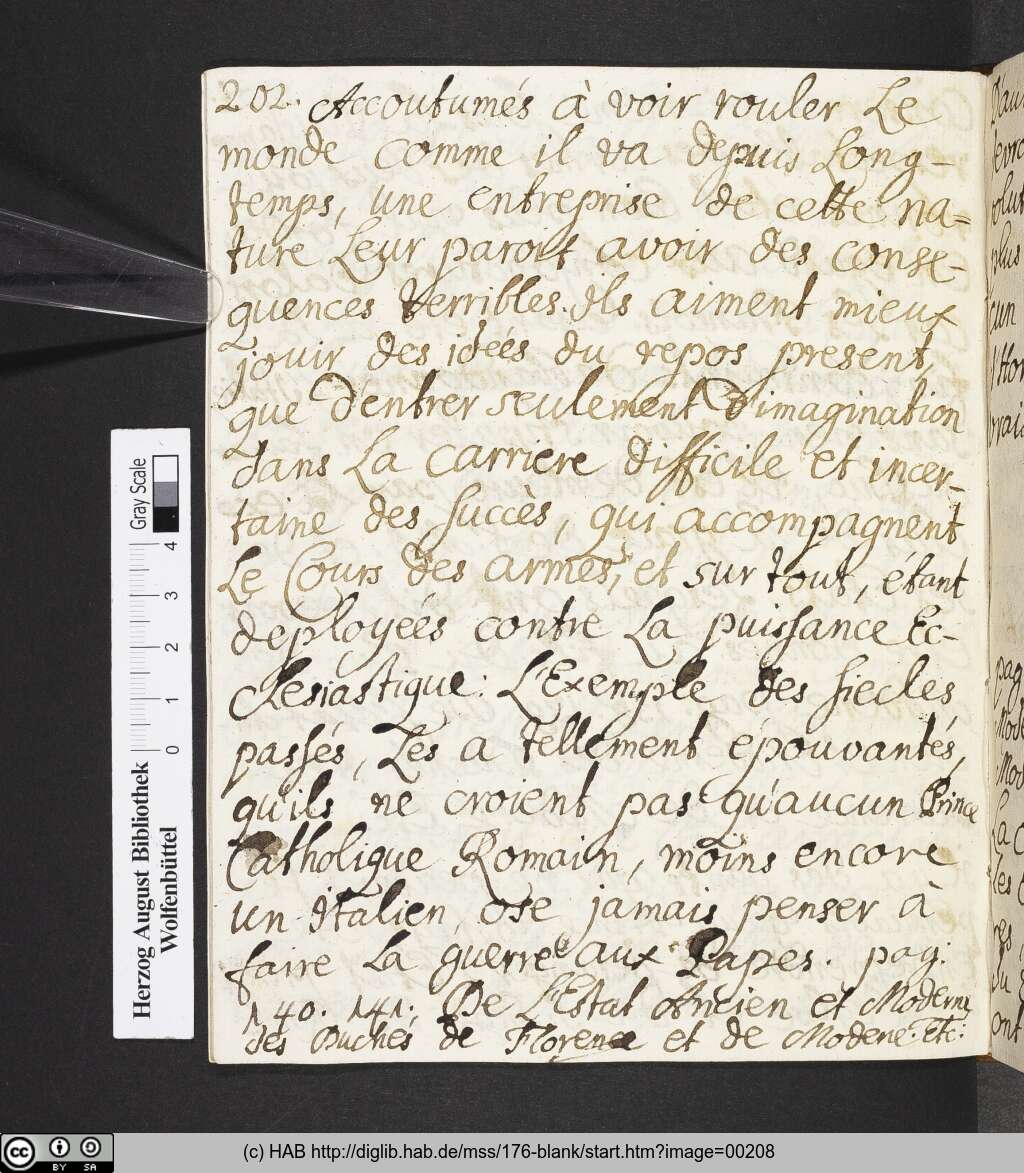 202. Accoutumés à voir rouler Le
monde comme il va depuis Long-
temps, une entreprise de cette na=
ture Leur paroit avoir des conse-
quences terribles. Ils aiment mieux
jouir des idées du repos present,
que d'entrer seulement d'imagination
dans La carriere difficile et incer-
taine des succès, qui accompagnent
Le Cours des armes, et sur tout, étant
deployées contre La puissance Ec-
clesiastique: L'Exemple des siecles
passés, Les a tellement épouvantés,
qu'ils ne croient pas qu'aucun Prince
Catholique Romain, moins encore
un Italien, ose jamais penser à
faire La guerre aux Papes. pag:
140. 141. De L'Estat Ancien et Moderne
des Duchés de Florence et de Modene: etc:
Gray Scale
4
3
2
1
0
Herzog August Bibliothek
Wolfenbüttel
cc BY SA
(c) HAB http://diglib.hab.de/mss/176-blank/start.htm?image=00208